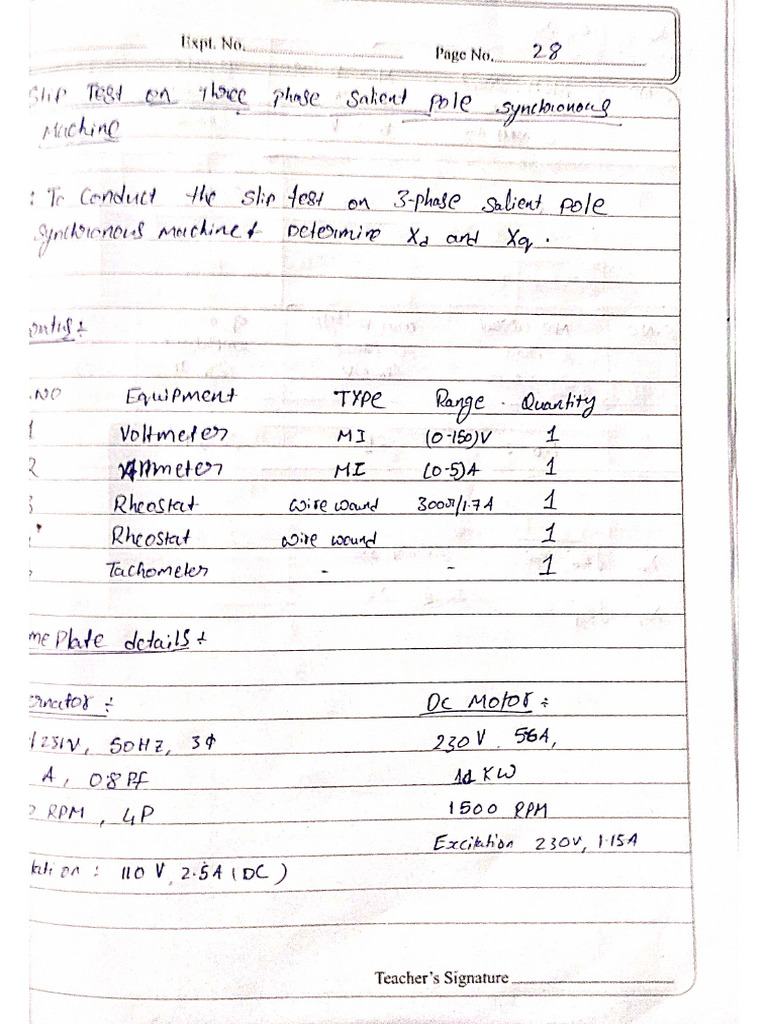 Expt. No.
Page No. 28
Slip Test on Three phase Salient pole synchronous
Machine
: To Conduct the Slip test on 3-phase salient pole
synchronous machine & Determine Xd and Xq.
.NO Equipment TYPE Range. Quantity
1 Voltmeter MI (0-150)V 1
2 Ammeter MI (0-5)A 1
3 Rheostat wire wound 300Ω/1.7A 1
Rheostat wire wound 1
Tachometer - - 1
me Plate details:
ernator :- DC Motor :-
/251V, 50HZ, 3Φ 230V 56A,
A, 0.8 Pf 11 KW
RPM, 4P 1500 RPM
Excitation 230V, 1.15A
tation : 110 V, 2.5A (DC)
Teacher's Signature